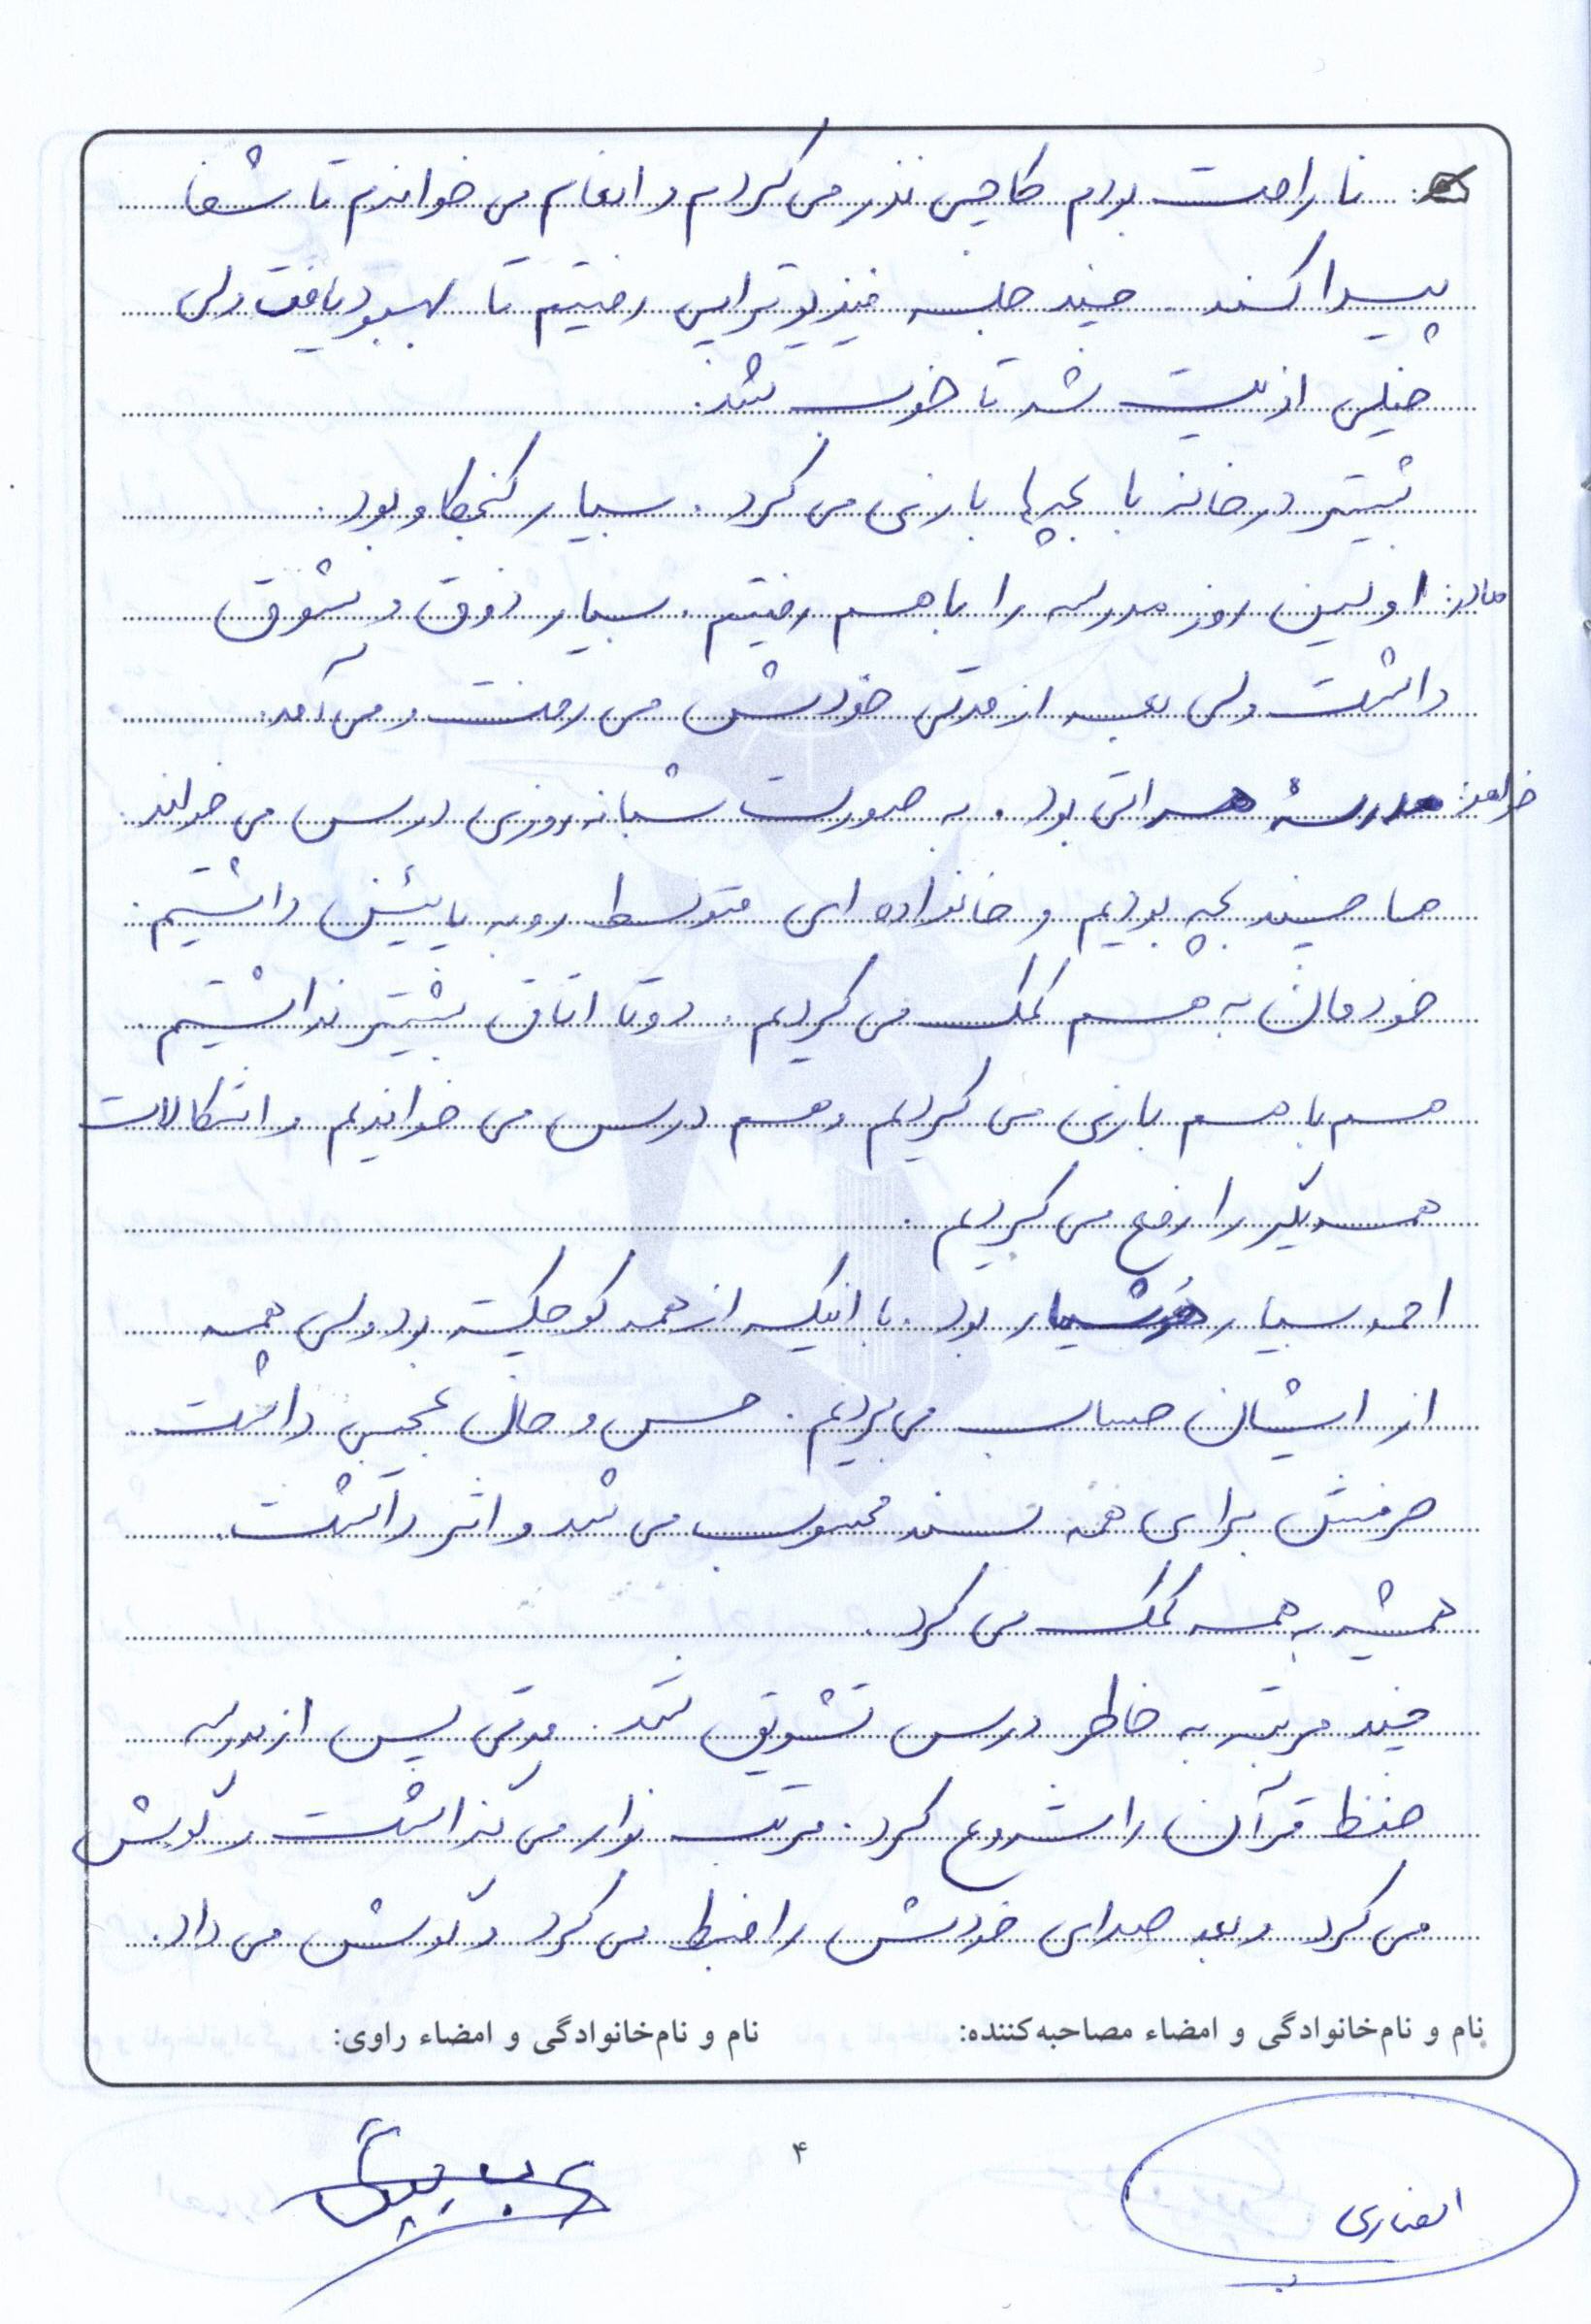 ناراحت بودم کاچی نذر می‌کردم و انعام می خواندم تا شفا
پیدا کند. چند جلسه فیزیوتراپی رفتیم تا بهبود یافت ولی
خیلی اذیت شد تا خوب شد.
بیشتر در خانه با بچه‌ها بازی می کرد. بسیار کنجکاو بود.
مادر: اولین روز مدرسه را با هم رفتیم. بسیار ذوق و شوق
داشت ولی بعد از مدتی خودش می رفت و می آمد.
خواهر: مدرسهٔ هراتی بود. به صورت شبانه روزی درس می خواند.
ما چند بچه بودیم و خانواده ای متوسط رو به پایین داشتیم.
خودمان به هم کمک می کردیم. دو تا اتاق بیشتر نداشتیم
هم با هم بازی می کردیم و هم درس می خواندیم و اشکالات
همدیگر را رفع می کردیم.
احمد بسیار هوشیار بود. با اینکه از همه کوچکتر بود ولی همه
از ایشان حساب می‌بردیم. حس و حال عجیبی داشت
حرفش برای همه سند محسوب می شد و اثر داشت.
همیشه به همه کمک می کرد.
چند مرتبه به خاطر درس تشویق شد. مدتی پس از مدرسه
حفظ قرآن را شروع کرد. مرتب نوار می گذاشت و گوش
می کرد و بعد صدای خودش را ضبط می کرد و گوش می داد.
نام و نام‌خانوادگی و امضاء مصاحبه‌کننده: نام و نام‌خانوادگی و امضاء راوی:
انصاری
۴